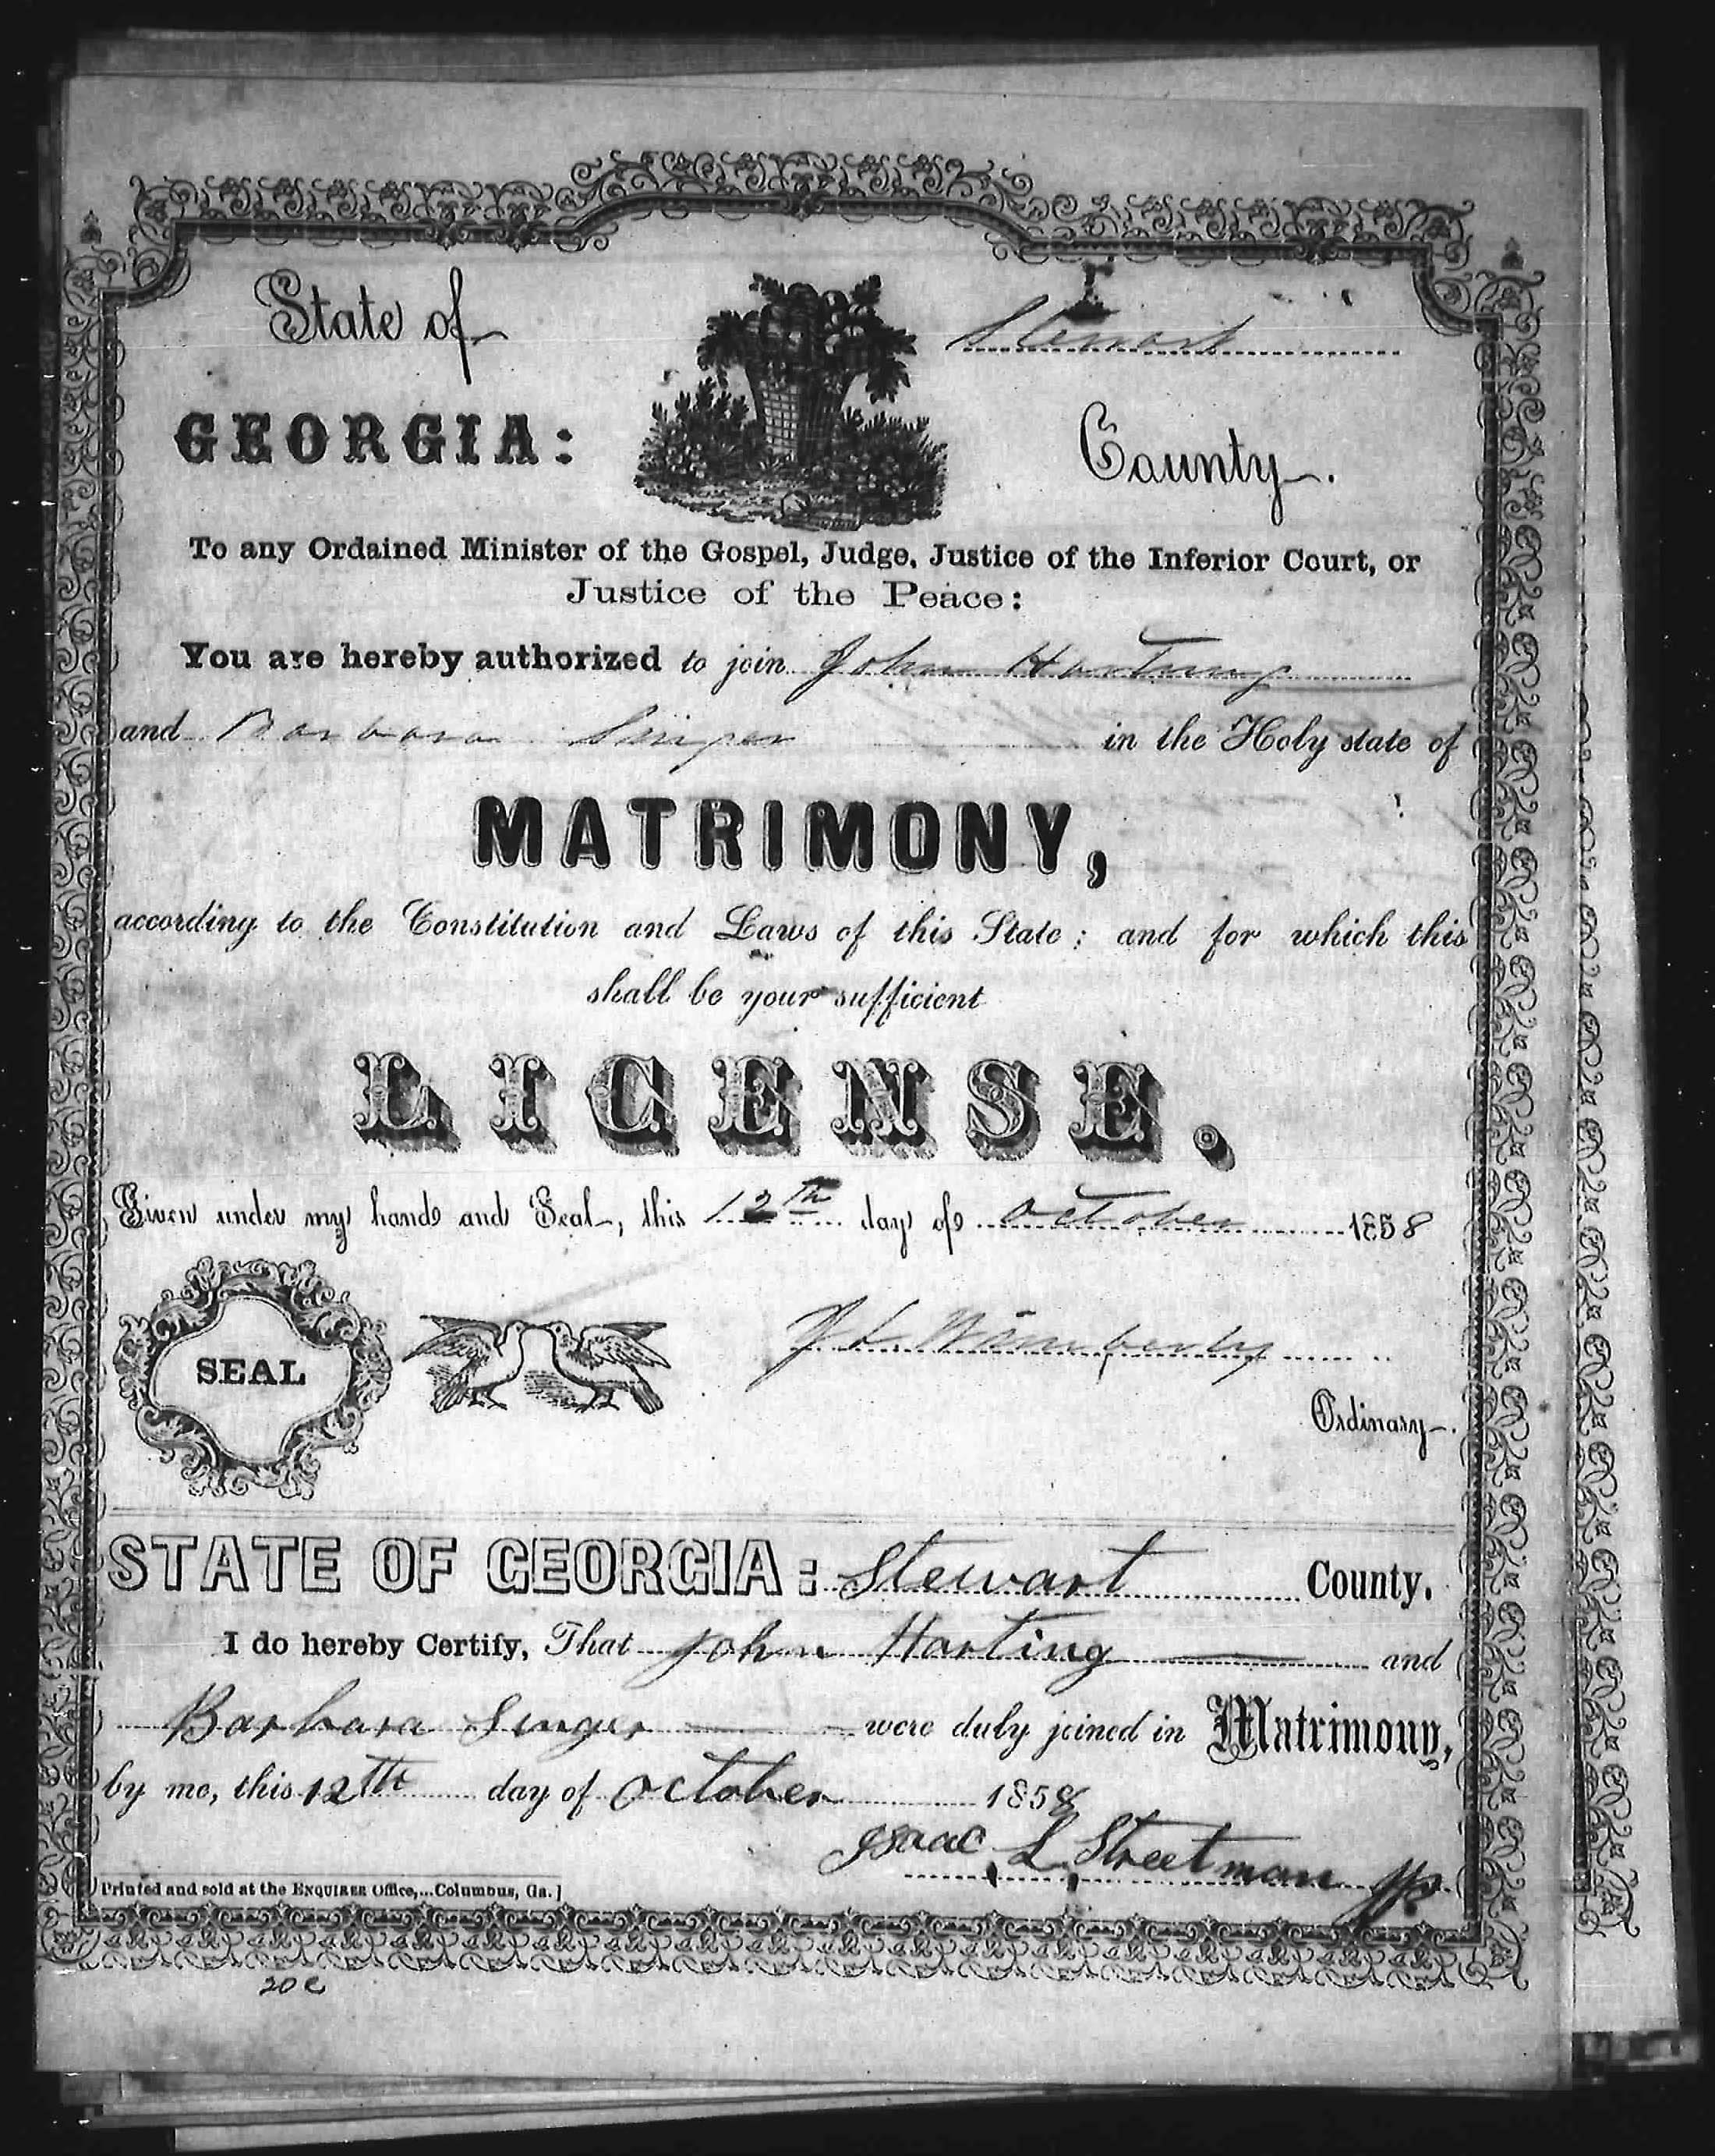 State of
Stewart
GEORGIA:
County.
To any Ordained Minister of the Gospel, Judge, Justice of the Inferior Court, or
Justice of the Peace:
You are hereby authorized to join John Hartung
and Barbara Singer in the Holy state of
MATRIMONY,
according to the Constitution and Laws of this State; and for which this
shall be your sufficient
LICENSE.
Given under my hand and Seal, this 12th day of October 1858
SEAL
J. L. Wimberly
Ordinary.
STATE OF GEORGIA: Stewart County.
I do hereby Certify, That John Harting and
Barbara Singer were duly joined in Matrimony,
by me, this 12th day of October 1858
Isaac L Streetman JP.
Printed and sold at the ENQUIRER Office,...Columbus, Ga.]
20 c